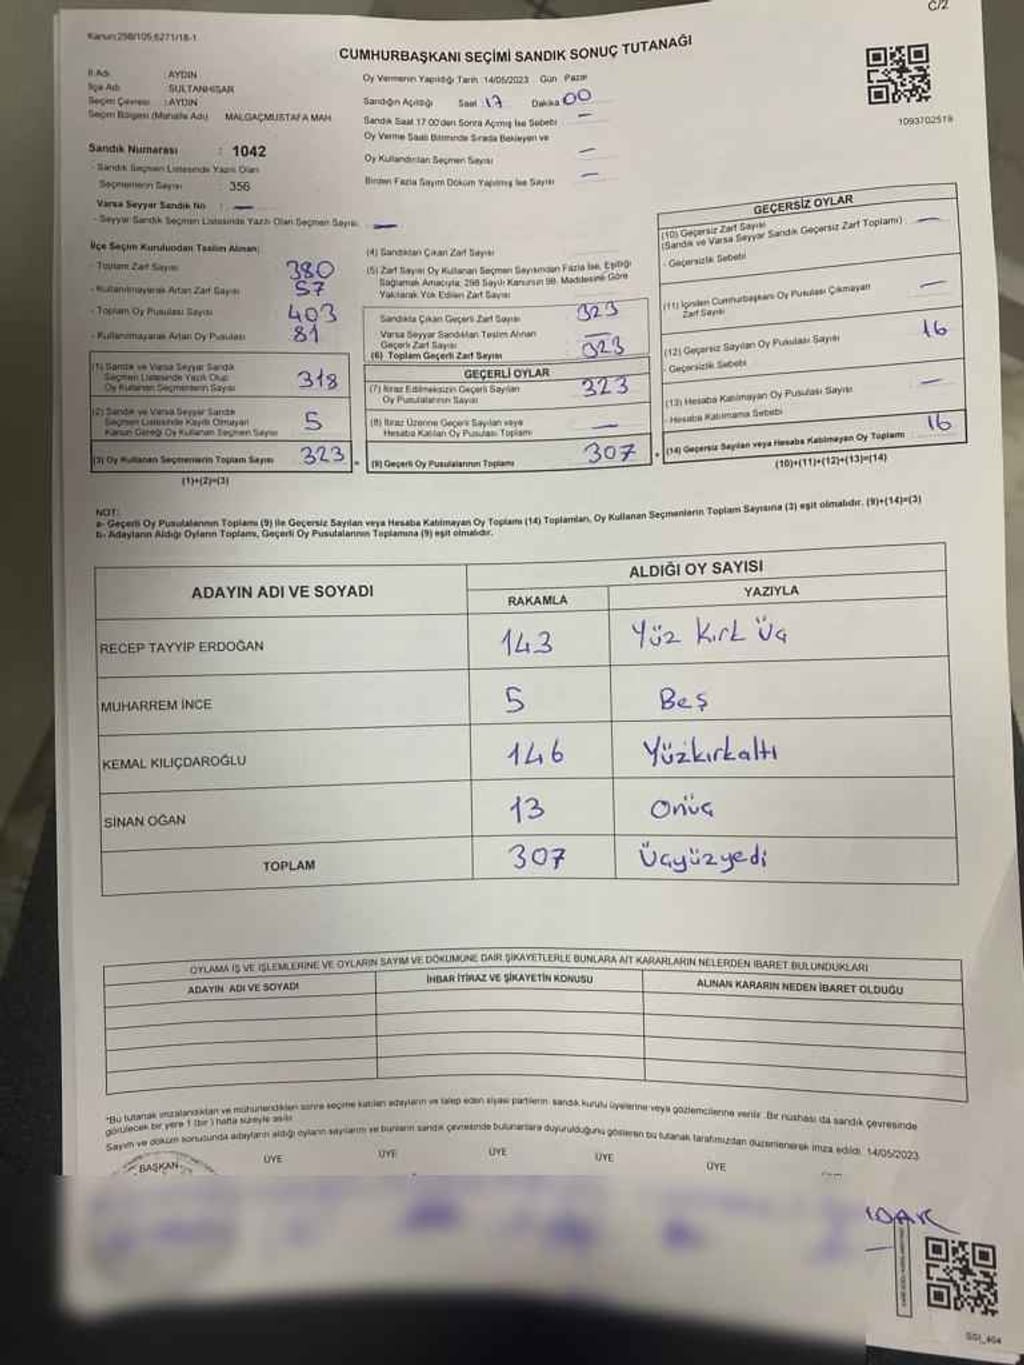 C/2
Kanun:298/105,6271/18-1
CUMHURBAŞKANI SEÇİMİ SANDIK SONUÇ TUTANAĞI
İl Adı : AYDIN
İlçe Adı : SULTANHİSAR
Seçim Çevresi : AYDIN
Seçim Bölgesi (Mahalle Adı) MALGAÇMUSTAFA MAH
Oy Vermenin Yapıldığı Tarih 14/05/2023 Gün Pazar
Sandığın Açıldığı Saat 17 Dakika 00
Sandık Saat 17 00'den Sonra Açmış İse Sebebi —
Oy Verme Saati Bitiminde Sırada Bekleyen ve
Oy Kullandırılan Seçmen Sayısı —
Birden Fazla Sayım Döküm Yapılmış İse Sayısı —
1093702519
Sandık Numarası : 1042
- Sandık Seçmen Listesinde Yazılı Olan
Seçmenlerin Sayısı : 356
Varsa Seyyar Sandık No : —
- Seyyar Sandık Seçmen Listesinde Yazılı Olan Seçmen Sayısı —
İlçe Seçim Kurulundan Teslim Alınan;
- Toplam Zarf Sayısı 380
- Kullanılmayarak Artan Zarf Sayısı 57
- Toplam Oy Pusulası Sayısı 403
- Kullanılmayarak Artan Oy Pusulası 81
(1) Sandık ve Varsa Seyyar Sandık
Seçmen Listesinde Yazılı Olup
Oy Kullanan Seçmenlerin Sayısı 318
(2) Sandık ve Varsa Seyyar Sandık
Seçmen Listesinde Kayıtlı Olmayan
Kanun Gereği Oy Kullanan Seçmen Sayısı 5
(3) Oy Kullanan Seçmenlerin Toplam Sayısı 323
(1)+(2)=(3)
(4) Sandıktan Çıkan Zarf Sayısı
(5) Zarf Sayısı Oy Kullanan Seçmen Sayısından Fazla İse, Eşitliği
Sağlamak Amacıyla; 298 Sayılı Kanunun 98. Maddesine Göre
Yakılarak Yok Edilen Zarf Sayısı
Sandıkta Çıkan Geçerli Zarf Sayısı 323
Varsa Seyyar Sandıktan Teslim Alınan
Geçerli Zarf Sayısı —
(6) Toplam Geçerli Zarf Sayısı 323
GEÇERLİ OYLAR
(7) İtiraz Edilmeksizin Geçerli Sayılan
Oy Pusulalarının Sayısı 323
(8) İtiraz Üzerine Geçerli Sayılan veya
Hesaba Katılan Oy Pusulası Toplamı —
(9) Geçerli Oy Pusulalarının Toplamı 307
GEÇERSİZ OYLAR
(10) Geçersiz Zarf Sayısı
(Sandık ve Varsa Seyyar Sandık Geçersiz Zarf Toplamı) —
- Geçersizlik Sebebi
(11) İçinden Cumhurbaşkanı Oy Pusulası Çıkmayan
Zarf Sayısı —
(12) Geçersiz Sayılan Oy Pusulası Sayısı 16
- Geçersizlik Sebebi
(13) Hesaba Katılmayan Oy Pusulası Sayısı —
- Hesaba Katılmama Sebebi
(14) Geçersiz Sayılan veya Hesaba Katılmayan Oy Toplamı 16
(10)+(11)+(12)+(13)=(14)
NOT:
a- Geçerli Oy Pusulalarının Toplamı (9) ile Geçersiz Sayılan veya Hesaba Katılmayan Oy Toplamı (14) Toplamları, Oy Kullanan Seçmenlerin Toplam Sayısına (3) eşit olmalıdır. (9)+(14)=(3)
b- Adayların Aldığı Oyların Toplamı, Geçerli Oy Pusulalarının Toplamına (9) eşit olmalıdır.
ADAYIN ADI VE SOYADI
ALDIĞI OY SAYISI
RAKAMLA YAZIYLA
RECEP TAYYİP ERDOĞAN 143 Yüz Kırk Üç
MUHARREM İNCE 5 Beş
KEMAL KILIÇDAROĞLU 146 Yüzkırkaltı
SİNAN OĞAN 13 Onüç
TOPLAM 307 Üçyüzyedi
OYLAMA İŞ VE İŞLEMLERİNE VE OYLARIN SAYIM VE DÖKÜMÜNE DAİR ŞİKAYETLERLE BUNLARA AİT KARARLARIN NELERDEN İBARET BULUNDUKLARI
ADAYIN ADI VE SOYADI İHBAR İTİRAZ VE ŞİKAYETİN KONUSU ALINAN KARARIN NEDEN İBARET OLDUĞU
*Bu tutanak imzalandıktan ve mühürlendikten sonra seçime katılan adayların ve talep eden siyasi partilerin sandık kurulu üyelerine veya gözlemcilerine verilir. Bir nüshası da sandık çevresinde
görülecek bir yere 1 (bir) hafta süreyle asılır.
Sayım ve döküm sonucunda adayların aldığı oyların sayılarını ve bunların sandık çevresinde bulunanlara duyurulduğunu gösteren bu tutanak tarafımızdan düzenlenerek imza edildi. 14/05/2023
BAŞKAN ÜYE ÜYE ÜYE ÜYE ÜYE
SGI_404